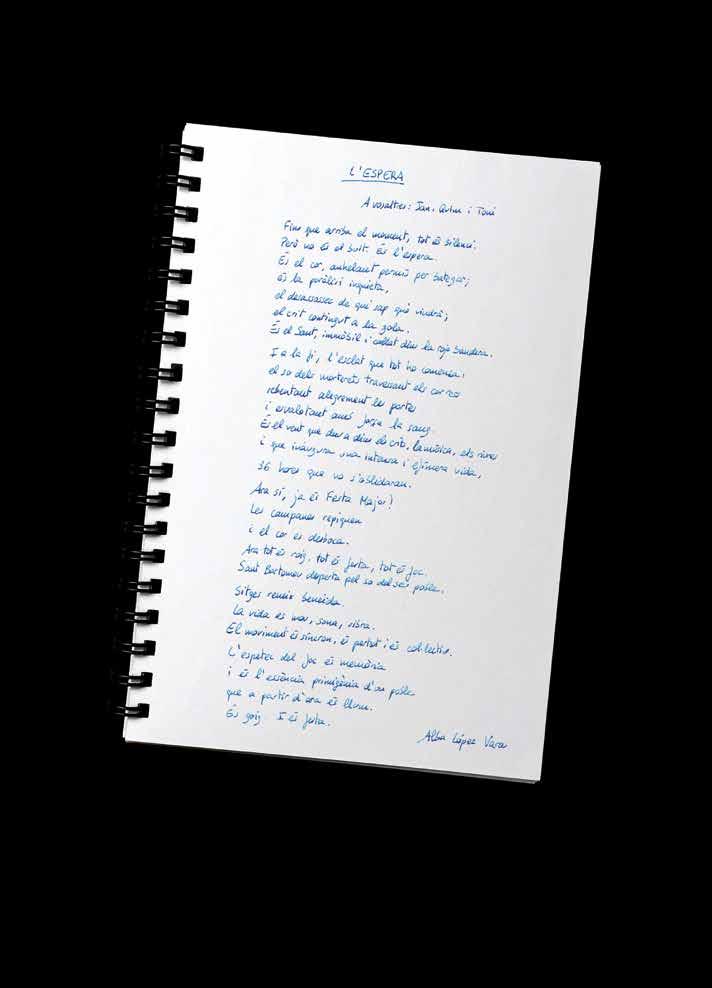 L'ESPERA
A vosaltres: Jan, Quim i Toni
Fins que arriba el moment, tot és silenci.
Però no és el buit. És l'espera.
És el cor, anhelant permís per bategar;
és la paràlisi inquieta,
el desassossec de qui sap què vindrà;
el crit contingut a la gola.
És el Sant, immòbil i callat dins la roja bandera.
I a la fi, l'esclat que tot ho comença,
el so dels morterets travessant els carrers
rebentant alegrement les portes
i esvalotant amb joia la sang.
És el vent que duu a dins els crits, la música, els riures
i que inaugura una intensa i efímera vida,
36 hores que no s'oblidaran.
Ara sí, ja és Festa Major!
Les campanes repiquen
i el cor es desboca.
Ara tot és roig, tot és festa, tot és joc.
Sant Bartomeu desperta pel so del seu poble.
Sitges reneix beneïda.
La vida es mou, sona, vibra.
El moviment és síncron, és pertot i és col·lectiu.
L'espetec del foc és memòria
i és l'essència primigènia d'un poble
que a partir d'ara és llum.
És goig. I és festa.
Alba López Vara